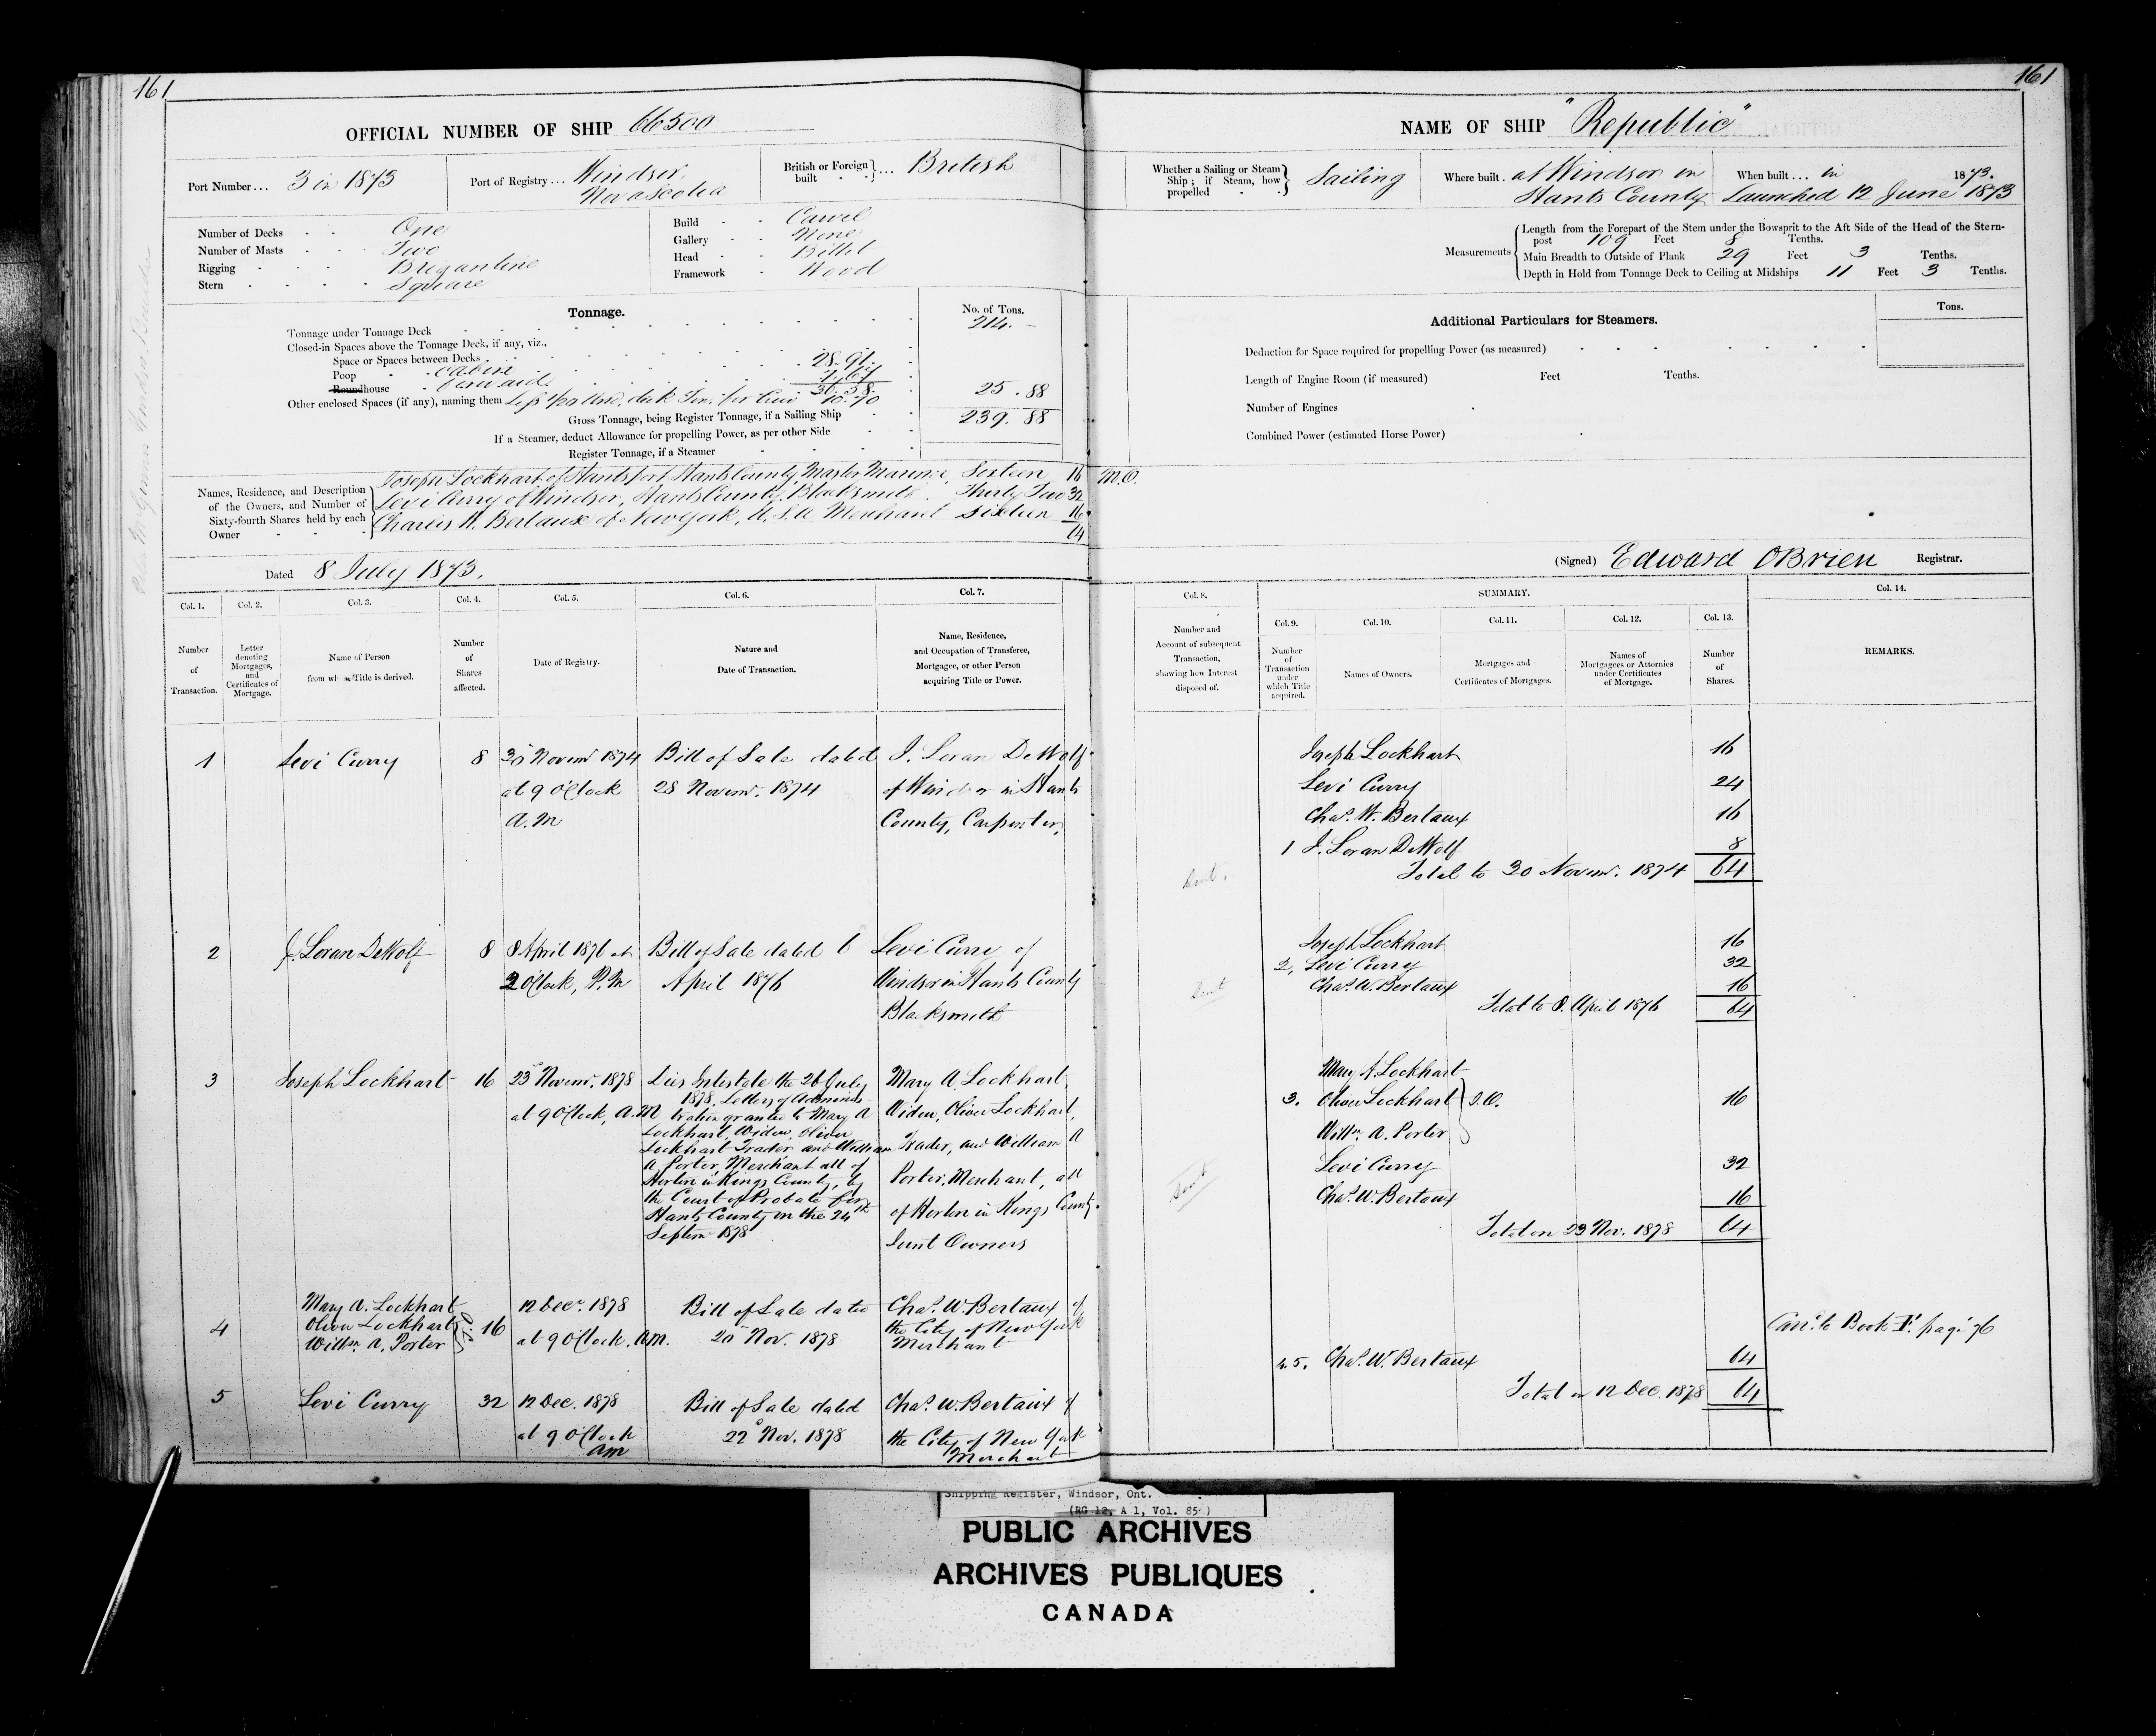 161
161
OFFICIAL NUMBER OF SHIP 66500
Port Number... 3 in 1873
Port of Registry... Windsor, Nova Scotia
British or Foreign built ... British
Number of Decks One
Number of Masts Two
Rigging Brigantine
Stern Square
Build Carvel
Gallery None
Head Billet
Framework Wood
Tonnage.
No. of Tons.
Tonnage under Tonnage Deck 214.—
Closed-in Spaces above the Tonnage Deck, if any, viz.,
Space or Spaces between Decks
Poop Cabin 28.91
Roundhouse forward 7.67
36.58
Other enclosed Spaces (if any), naming them 10.70 25.88
Gross Tonnage, being Register Tonnage, if a Sailing Ship 239.88
If a Steamer, deduct Allowance for propelling Power, as per other Side
Register Tonnage, if a Steamer
Names, Residence, and Description of the Owners, and Number of Sixty-fourth Shares held by each Owner
Joseph Lockhart of Hantsport Hants County, Master Mariner, Sixteen 16 M.O.
Levi Curry of Windsor, Hants County, Blacksmith. Thirty Two 32
Charles W. Bertaux of New York, U.S.A. Merchant Sixteen 16
64
Dated 8 July 1873.
NAME OF SHIP "Republic"
Whether a Sailing or Steam Ship; if Steam, how propelled Sailing
Where built. at Windsor in Hants County
When built... in 1873. Launched 12 June 1873
Measurements
Length from the Forepart of the Stem under the Bowsprit to the Aft Side of the Head of the Stern-
post 109 Feet 8 Tenths.
Main Breadth to Outside of Plank 29 Feet 3 Tenths.
Depth in Hold from Tonnage Deck to Ceiling at Midships 11 Feet 3 Tenths.
Additional Particulars for Steamers.
Tons.
Deduction for Space required for propelling Power (as measured)
Length of Engine Room (if measured) Feet Tenths.
Number of Engines
Combined Power (estimated Horse Power)
(Signed) Edward OBrien Registrar.
Col. 1. Col. 2. Col. 3. Col. 4. Col. 5. Col. 6. Col. 7.
Number of Transaction.
Letter denoting Mortgages, and Certificates of Mortgage.
Name of Person from whom Title is derived.
Number of Shares affected.
Date of Registry.
Nature and Date of Transaction.
Name, Residence, and Occupation of Transferee, Mortgagee, or other Person acquiring Title or Power.
1
Levi Curry
8
30 Novemr. 1874
at 9 OClock
A.M
Bill of Sale dated
28 Novemr. 1874
J. Loran DeWolf
of Windsor in Hants
County, Carpenter,
2
J. Loran DeWolf
8
8 April 1876 at
2 OClock, P.M
Bill of Sale dated 6
April 1876
Levi Curry of
Windsor in Hants County
Blacksmith
3
Joseph Lockhart
16
23d Novemr. 1878
at 9 OClock, A.M
Dies Intestate the 26 July
1878, Letters of Adminis-
tration granted to Mary A
Lockhart, Widow, Oliver
Lockhart Trader, and William
A Porter, Merchant all of
Horton in Kings County, by
the Court of Probate for
Hants County on the 24th
Septemr. 1878
Mary A. Lockhart,
Widow, Oliver Lockhart,
Trader, and William A
Porter, Merchant, all
of Horton in Kings County.
Joint Owners
4
Mary A. Lockhart
Oliver Lockhart
Willm. A. Porter
16
12 Decr. 1878
at 9 OClock. AM.
Bill of Sale dated
20 Nov. 1878
Chas. W. Bertaux of
the City of New York
Merchant
5
Levi Curry
32
12 Dec. 1878
at 9 OClock
AM
Bill of Sale dated
22d Nov. 1878
Chas. W. Bertaux of
the City of New York
Merchant
Col. 8.
SUMMARY.
Col. 9. Col. 10. Col. 11. Col. 12. Col. 13. Col. 14.
Number and Account of subsequent Transaction, showing how Interest disposed of.
Number of Transaction under which Title acquired.
Names of Owners.
Mortgages and Certificates of Mortgages.
Names of Mortgagees or Attornies under Certificates of Mortgage.
Number of Shares.
REMARKS.
Joseph Lockhart 16
Levi Curry 24
Chas. W. Bertaux 16
1 J. Loran DeWolf 8
Total to 30 Novemr. 1874 64
Sent.
Joseph Lockhart 16
2, Levi Curry 32
Chas. W. Bertaux 16
Total to 8. April 1876 64
Sent
Mary A. Lockhart
3. Oliver Lockhart J.O. 16
Willm. A. Porter
Levi Curry 32
Chas. W. Bertaux 16
Total on 23 Nov. 1878 64
Sent
4.5. Chas. W. Bertaux 64
Total on 12 Dec. 1878 64
Car'd to Book F. page 76
Shipping Register, Windsor, Ont.
(RG 12, A 1, Vol. 85)
PUBLIC ARCHIVES
ARCHIVES PUBLIQUES
CANADA